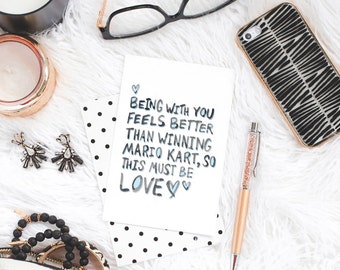 BEING WITH YOU
FEELS BETTER
THAN WINNING
MARIO KART, SO
THIS MUST BE
LOVE